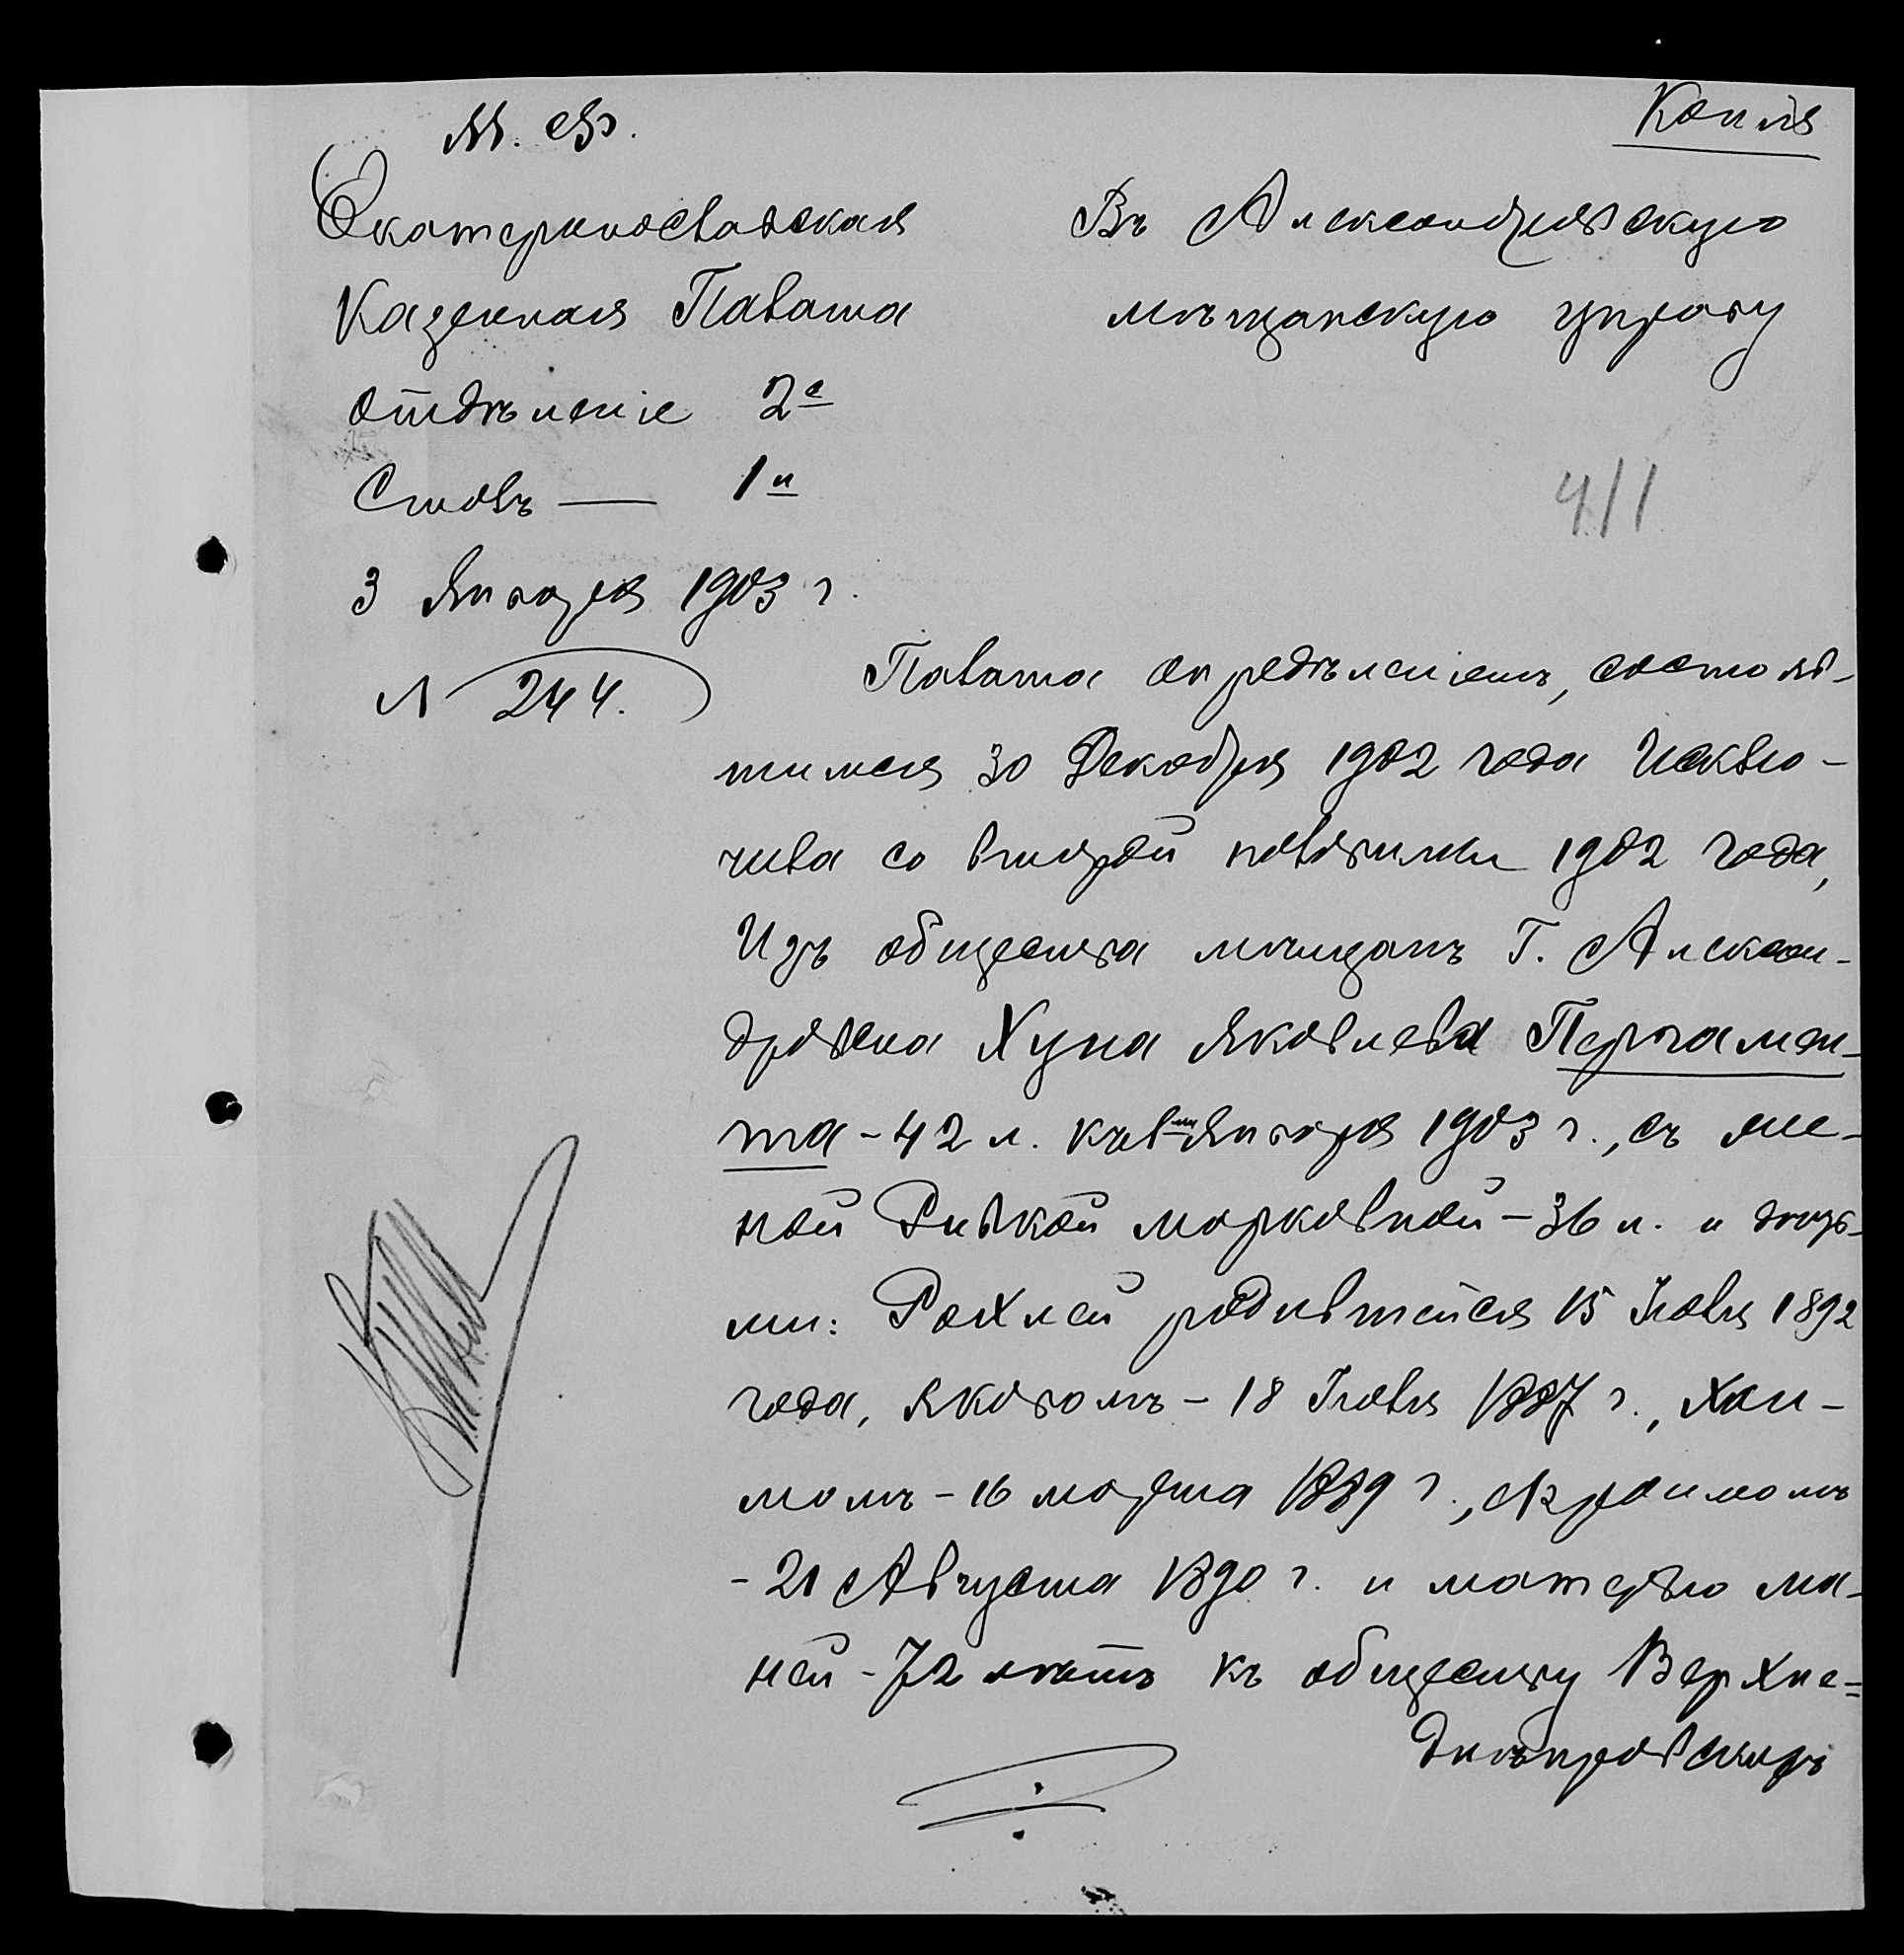 М. Ф.
Копія
Екатеринославская
Казенная Палата
отдѣленіе 2е
Столъ — 1й
3 Января 1903 г.
№ 244.
Въ Александровскую
мѣщанскую управу
411
Палата опредѣленіемъ, состояв-
шимся 30 Декабря 1902 года Исклю-
чила со второй половины 1902 года,
Изъ общества мѣщанъ Г. Алексан-
дровска Хуна Яковлева Пергамен-
та - 42 л. къ 1 Января 1903 г., съ же-
ной Ривкой Марковной - 36 л. и дѣть-
ми: Рохлей родившейся 15 Іюля 1892
года, Яковомъ - 18 Іюля 1887 г., Хаи-
момъ - 16 марта 1889 г., Фроимомъ
- 21 Августа 1890 г. и матерью Ма-
ней - 72 лѣтъ къ обществу Верхне=
днѣпровскихъ